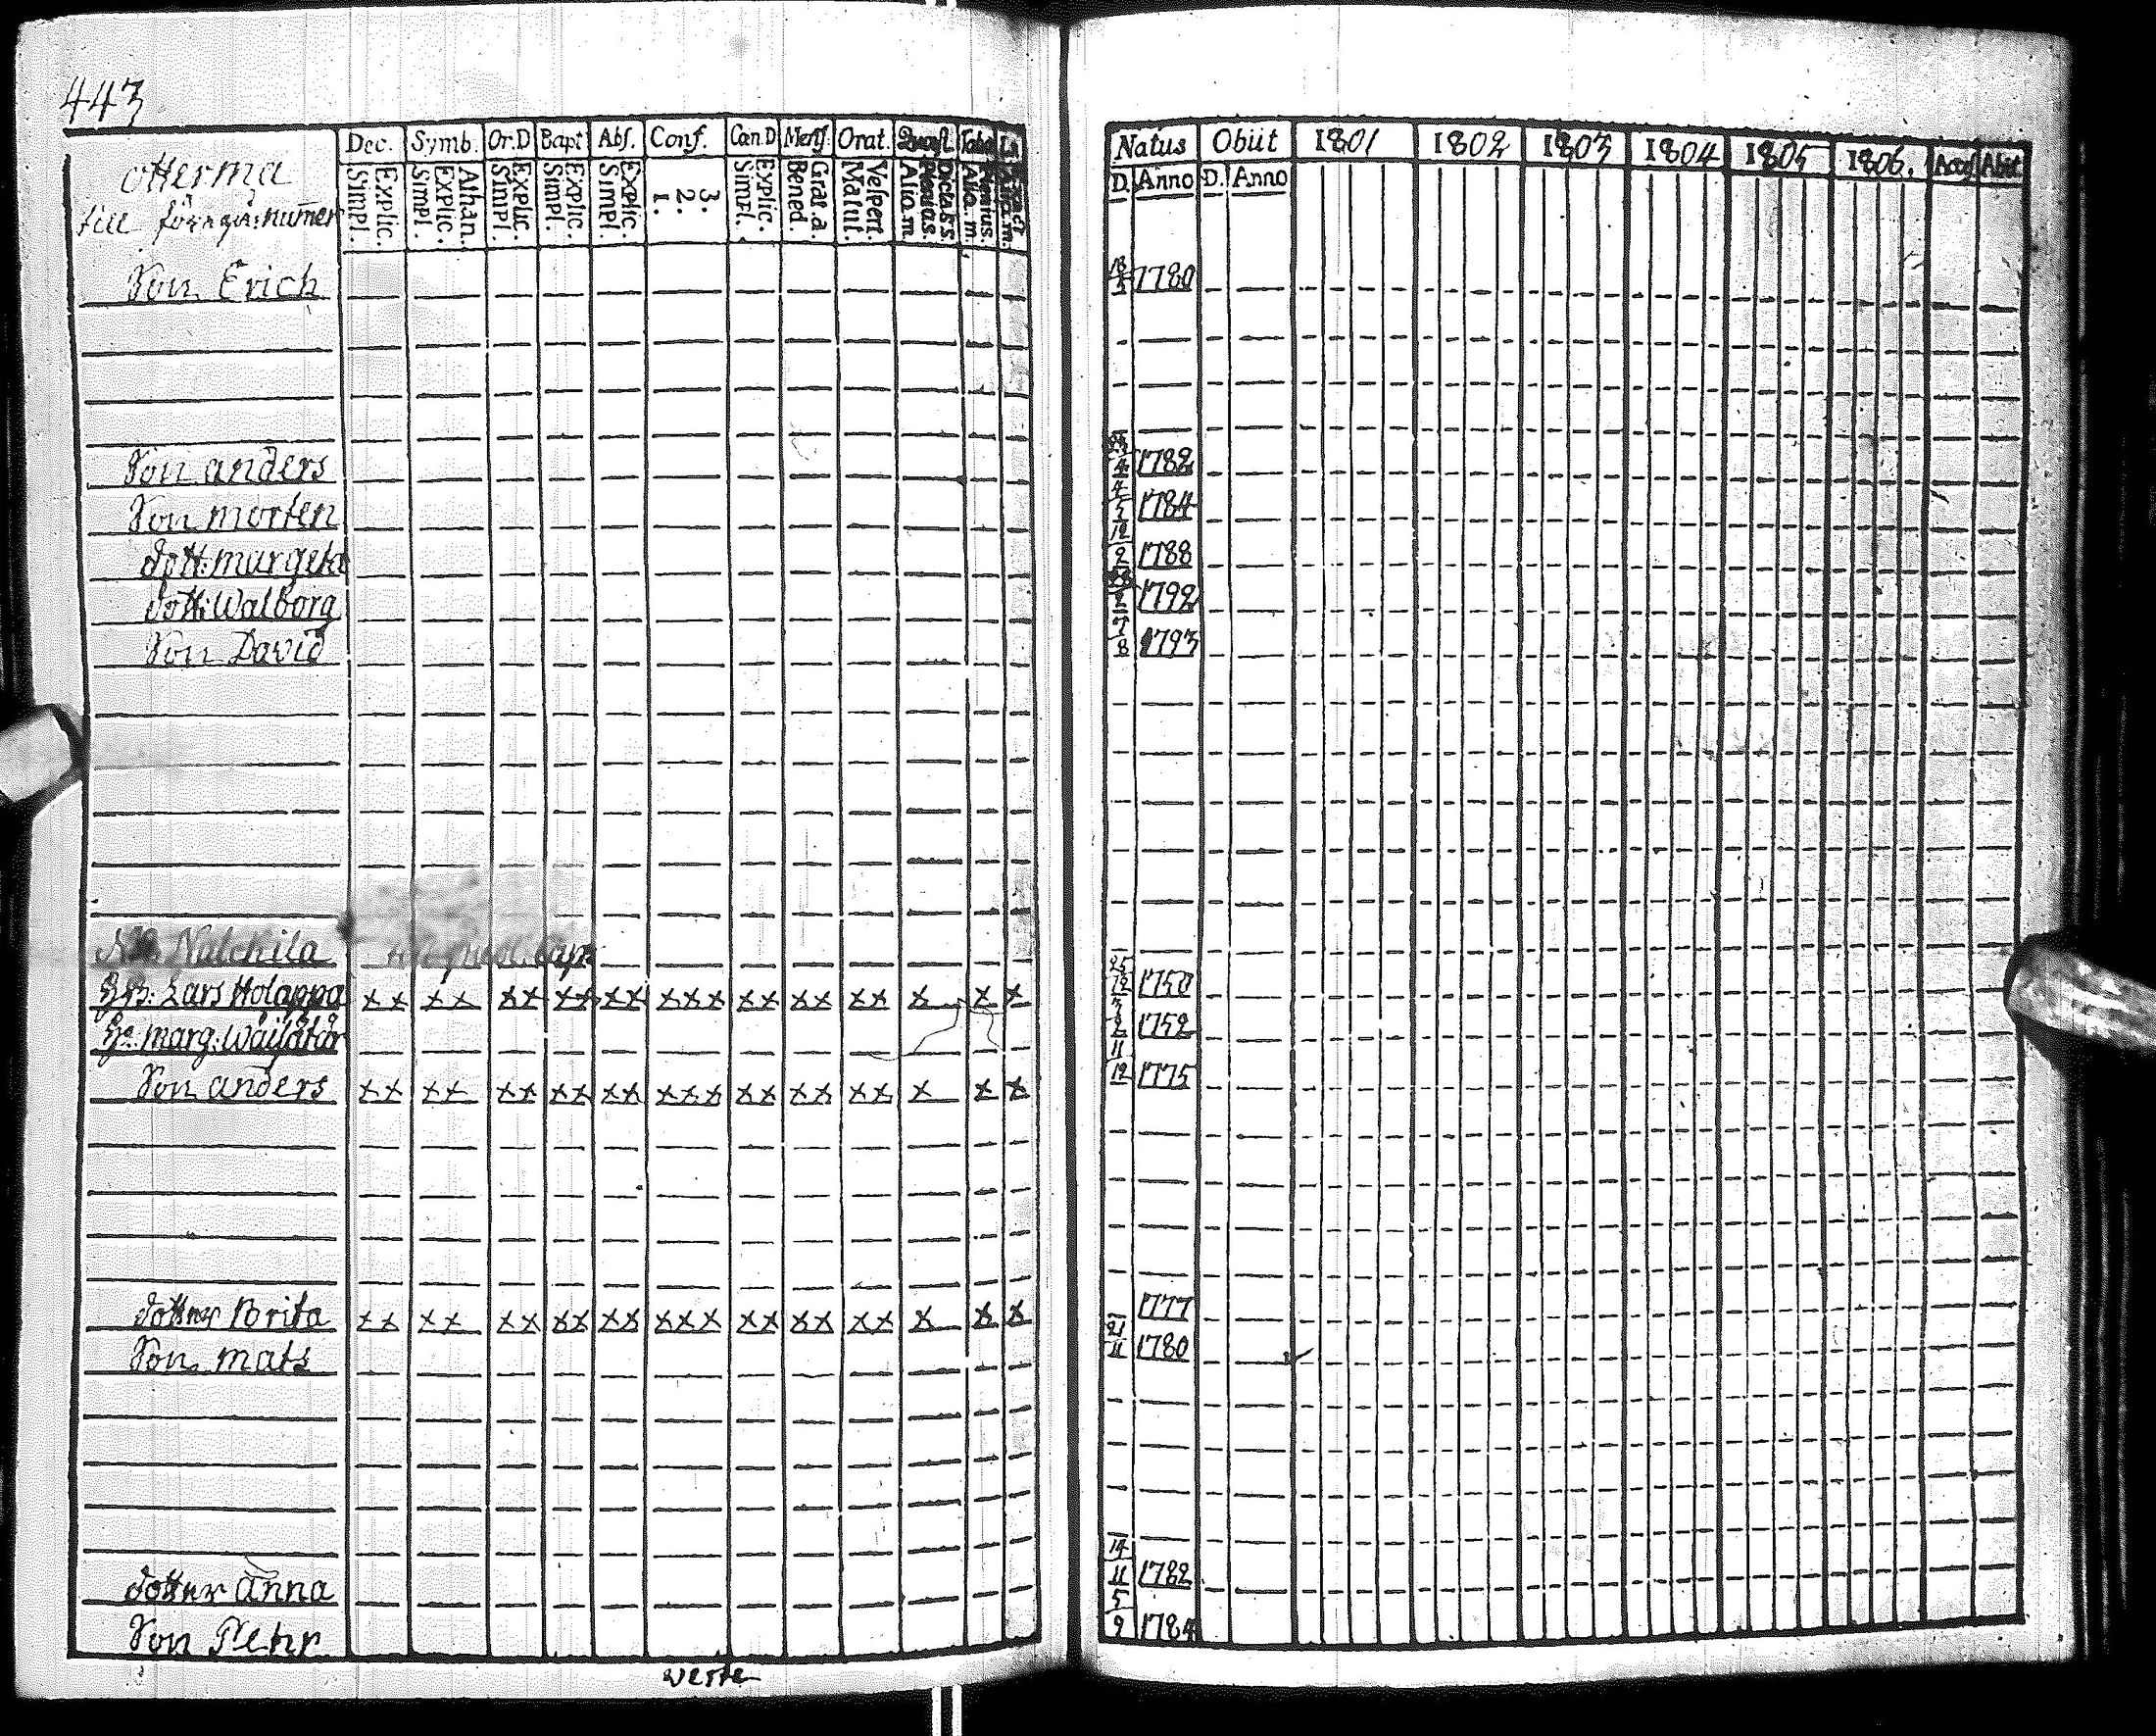 443
Otterma
till föregå: numer
Dec. Symb. Or.D Bapt Abs. Conf. Can.D Mens. Orat. Quæst. Tabᵃ
Simpl. Explic. Simpl. Explic. Athan. Simpl. Explic. Simpl. Explic. Simpl. Explic. 1. 2. 3. Simpl. Explic. Bened. Grat.a. Matut. Vespert. Alio.m. Plenius. Dicta SS. Alio.m. Plenius.
Natus Obiit 1801 1802 1803 1804 1805 1806. Acces Abiit
D. Anno D. Anno
Son Erich 18/3 1780
Son anders 4 1782
Son morten 4/5 1784
dott: margeta 12/2 1788
dott: Walborg 1792
Son David 7/8 1793
N: Nalchila
Lars Holappa x x x x x x x x x x x x x x x x x x x x x x 25/12 1750
marg: Wäisätär 3/2 1752
Son anders x x x x x x x x x x x x x x x x x x x x x x 11/12 1775
dotter Brita x x x x x x x x x x x x x x x x x x x x x x 1777
Son mats 21/11 1780
dotter anna 14/11 1782
Son Pehr 5/9 1784
verte